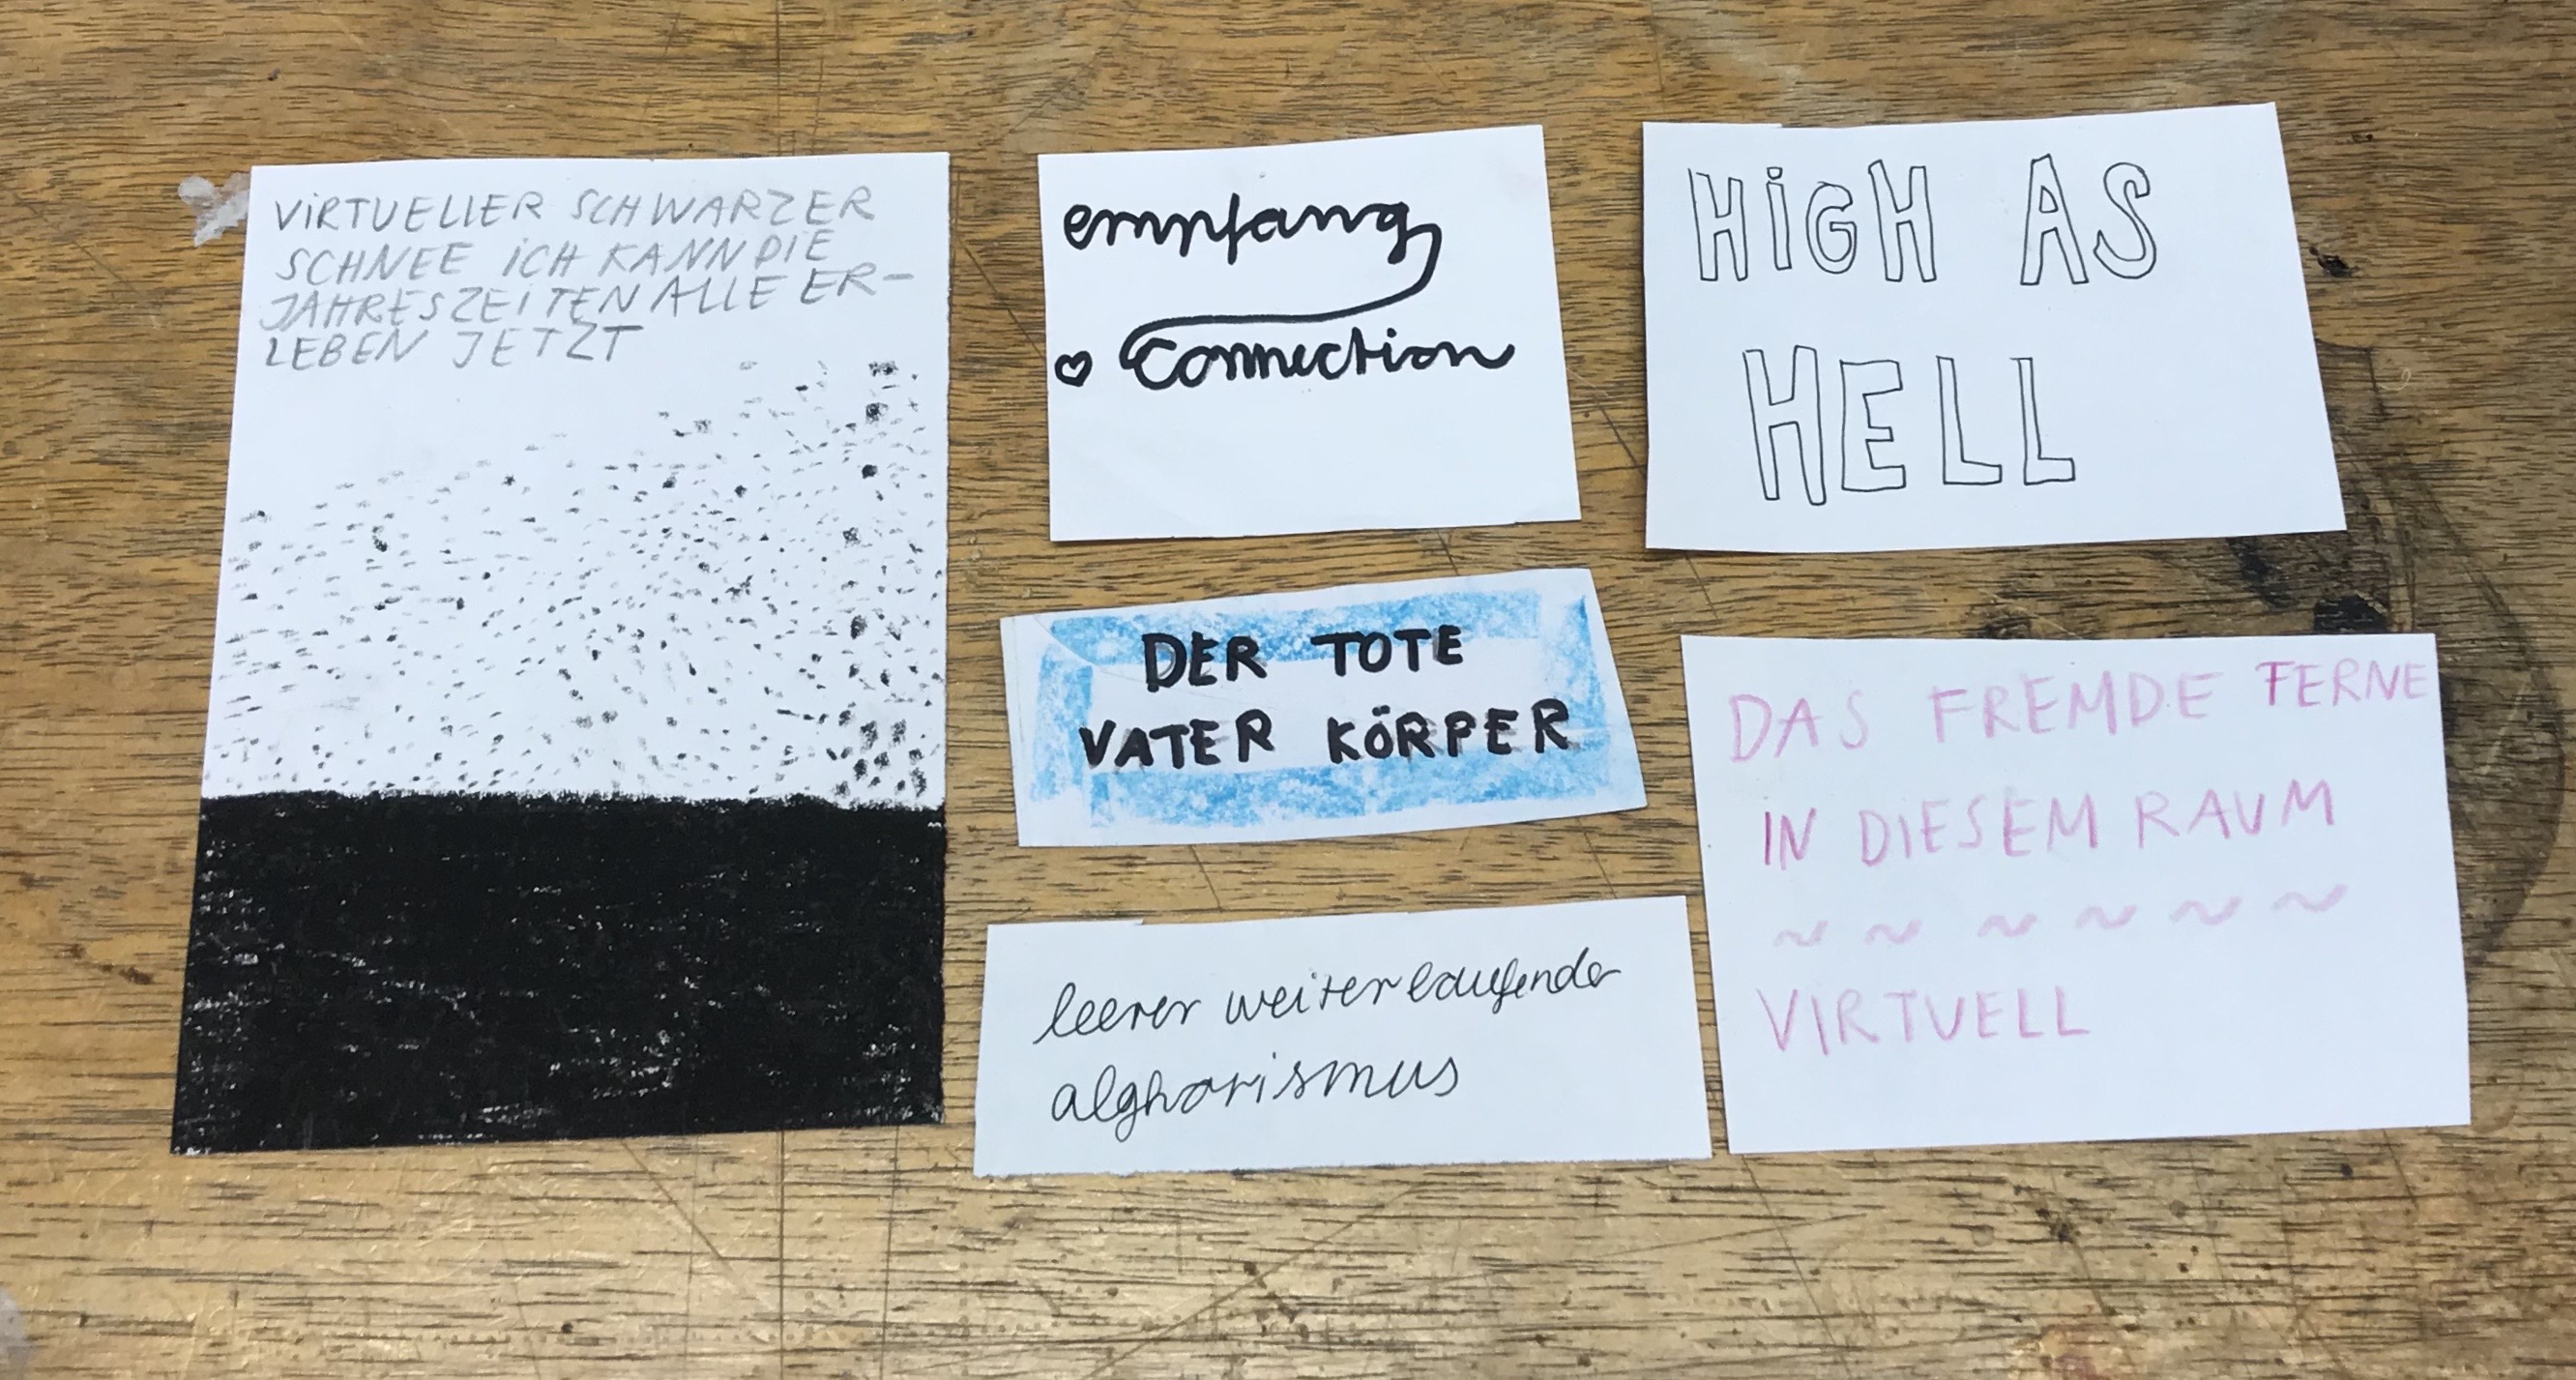 ViRTUELLER SCHWARZER
SCHNEE iCH KANN DIE
JAHRESZEITEN ALLE ER-
LEBEN JETZT
empfang
♡ Connection
HiGH AS
HELL
DER TOTE
VATER KÖRPER
leerer weiterlaufender
alghorismus
DAS FREMDE FERNE
IN DIESEM RAUM
~ ~ ~ ~ ~ ~
VIRTUELL